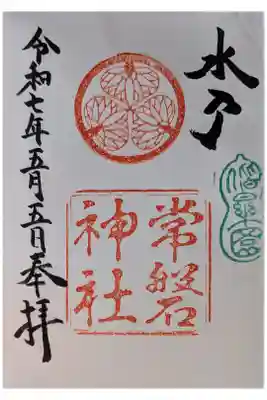 水戸
常磐
神社
令和七年五月五日奉拝